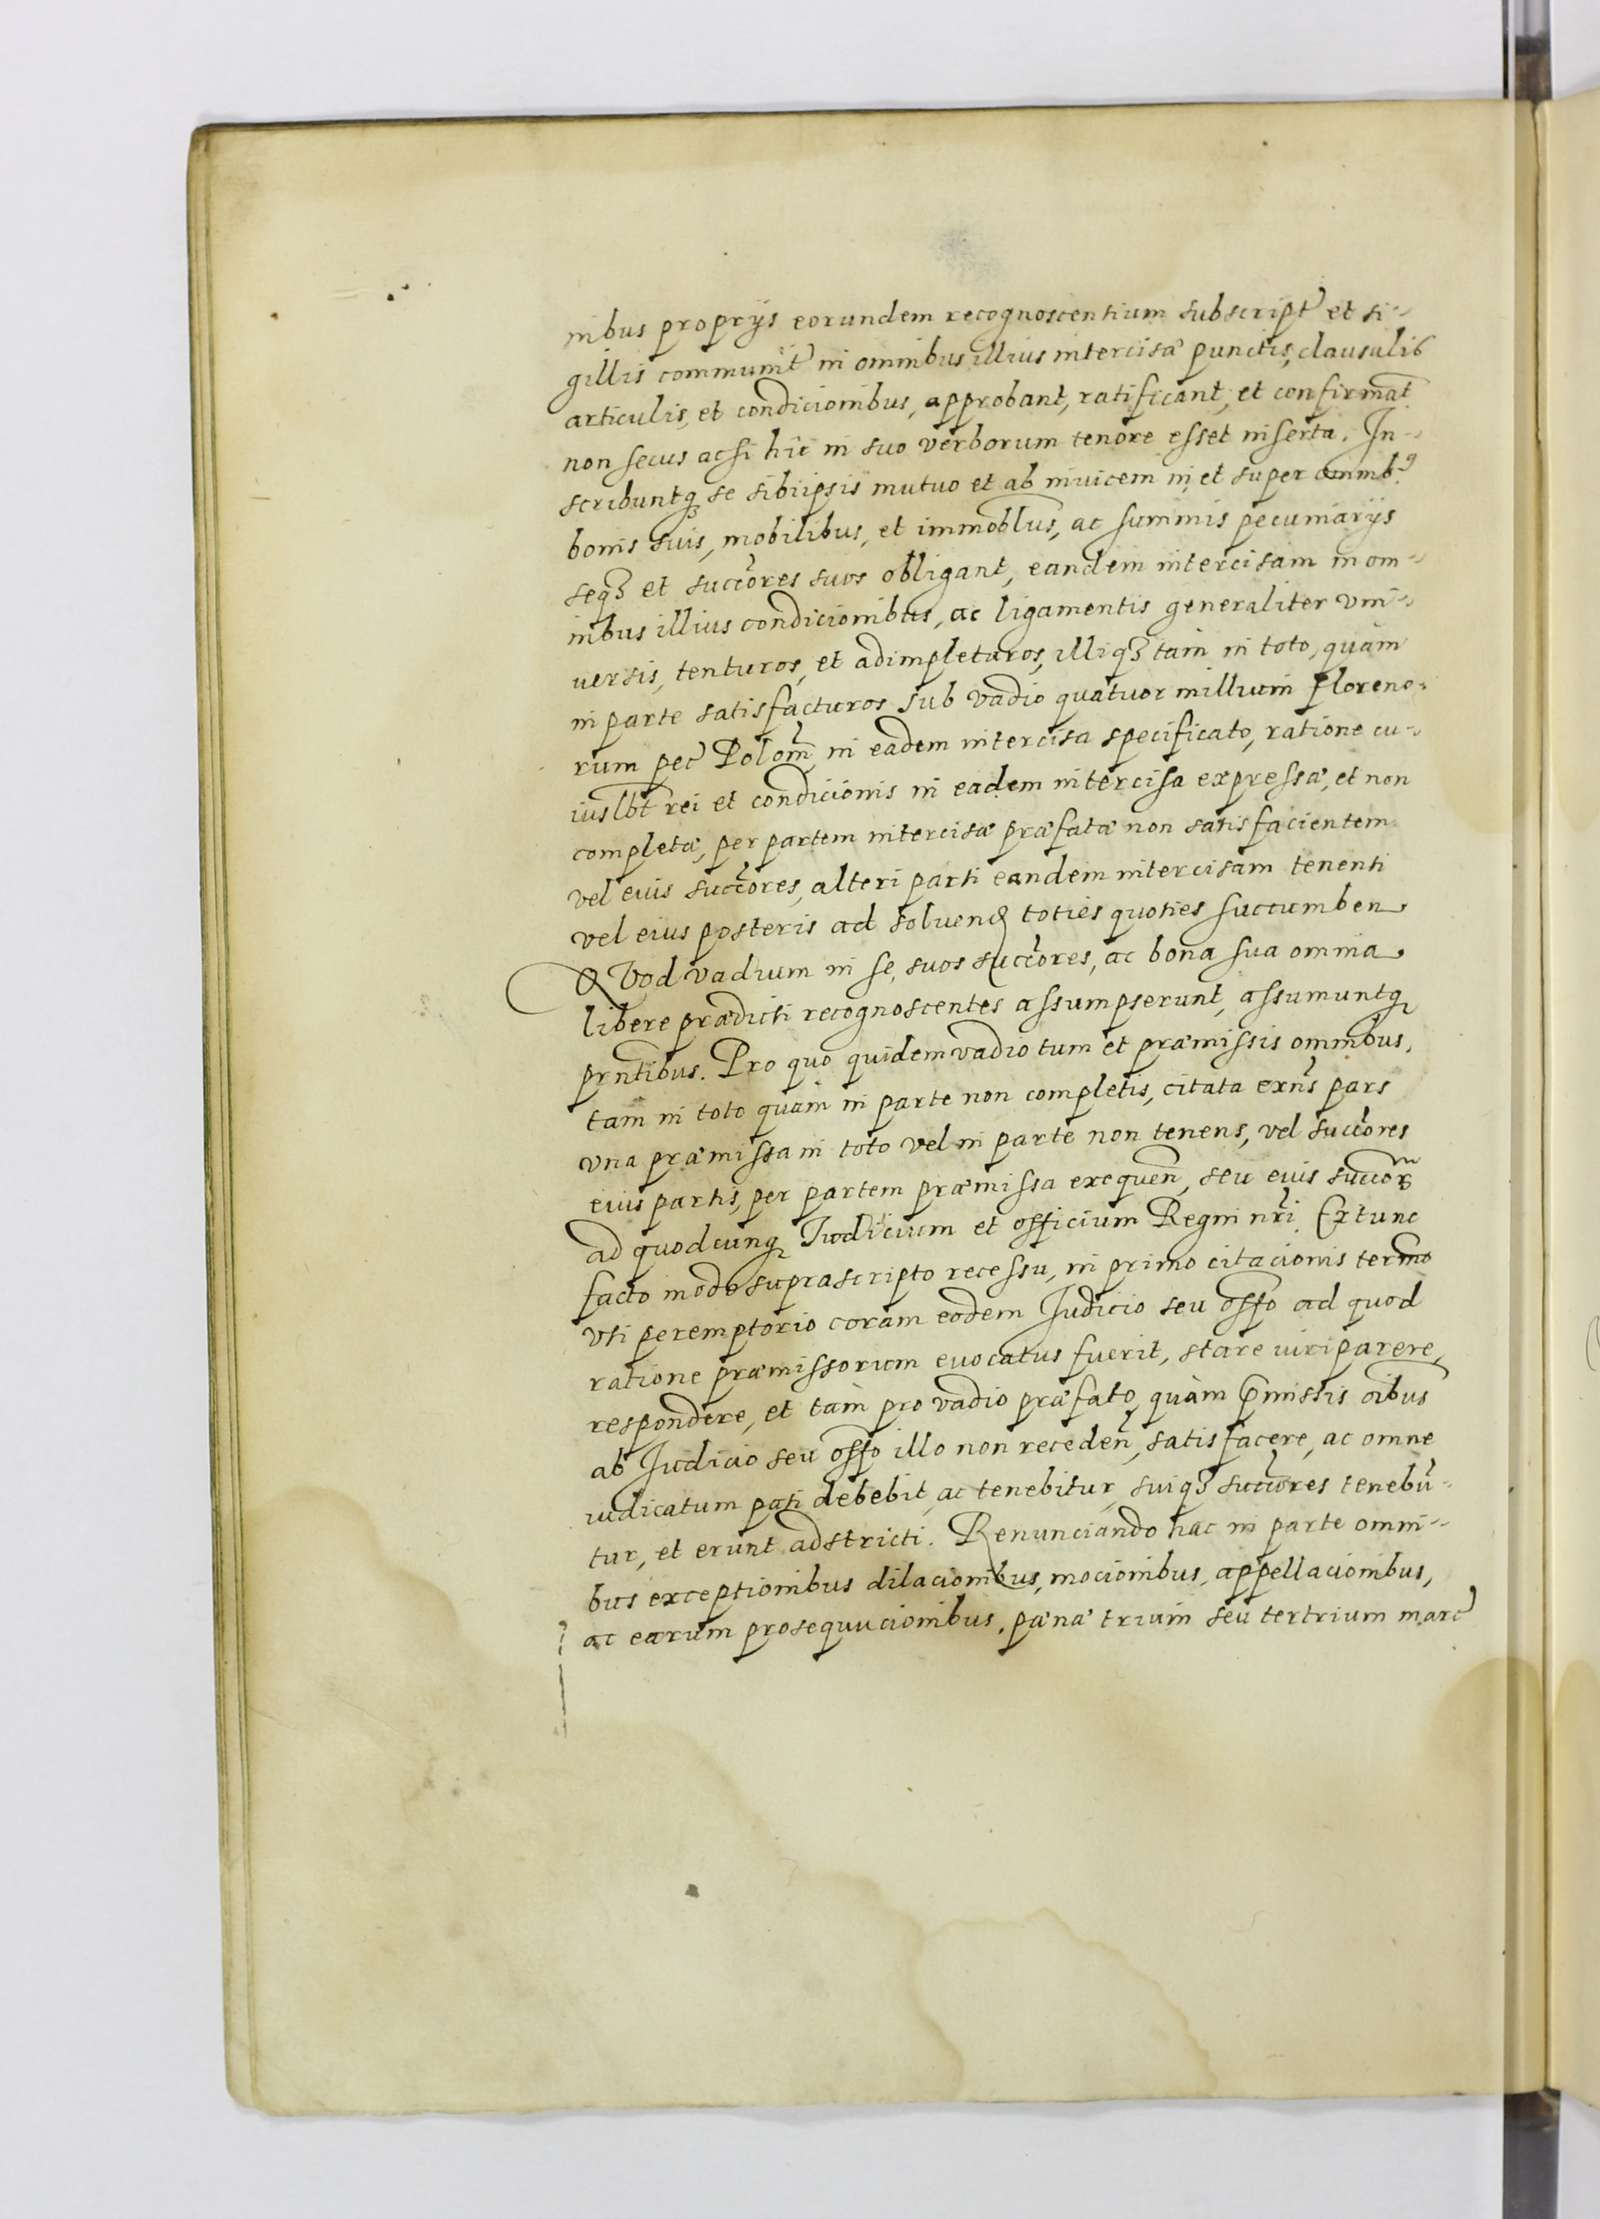 nibus proprijs eorundem recognoscentium subscript et si-
gillis communit in omnibus illius intercisæ punctis, clausulis
articulis, et condicionibus, approbant, ratificant, et confirmat
non secus acsi hîc in suo verborum tenore esset inserta. In-
scribuntq se sibiipsis mutuo et ab invicem in et super omnib9
bonis suis, mobilibus, et immoblus, ac summis pecuniarijs
seqz et succores suos obligant, eandem intercisam in om-
nibus illius condicionibus, ac ligamentis generaliter vni-
uersis, tenturos, et adimpleturos, illiqz tàm in toto, quàm
in parte satisfacturos sub vadio quatuor millium floreno-
rum pec Polom in eadem intercisa specificato, ratione cu-
iuslbt rei et condicionis in eadem intercisa expressæ, et non
completæ, per partem intercisæ præfatæ non satisfacientem
vel eius succores, alteri parti eandem intercisam tenenti
vel eius posteris ad soluend toties quoties succumben.
QVod vadium in se, suos succores, ac bona sua omnia
libere prædicti recognoscentes assumpserunt, assumuntq
prntibus. Pro quo quidem vadio tum et præmissis omnibus,
tam in toto quàm in parte non completis, citata exns pars
vna præmissa in toto vel in parte non tenens, vel succores
eius partis, per partem præmissa exequen, seu eius succor
ad quodcunq Iudicium et officium Regni nri. Extunc
facto modo suprascripto recessu, in primo citacionis termo
vti peremptorio coram eodem Iudicio seu offo ad quod
ratione præmissorum euocatus fuerit, stare iuri parere,
respondere, et tàm pro vadio præfato, quàm pmissis oibus
ab Iudicio seu offo illo non receden, satisfacere, ac omne
iudicatum pati debebit, ac tenebitur, suiqz succores tenebu-
tur, et erunt adstricti. Renunciando hac in parte omni-
bus exceptionibus dilacionibus, mocionibus, appellacionibus,
ac earum prosequucionibus, pænæ trium seu tertrium marc